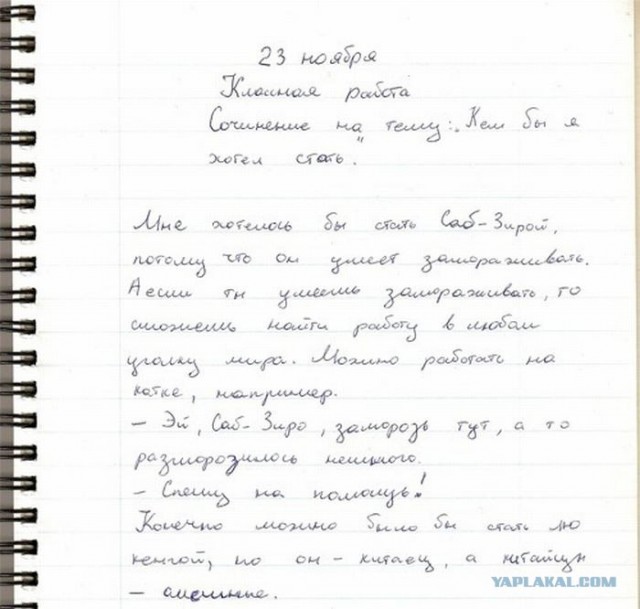 23 ноября
Класная работа
Сочинение на тему: „Кем бы я
хотел стать."
Мне хотелось бы стать Саб-Зирой,
потому что он умеет замораживать.
А если ты умеешь замораживать, то
сможешь найти работу в любом
уголку мира. Можно работать на
катке, например.
- Эй, Саб-Зиро, заморозь тут, а то
разморозилось немного.
- Спешу на помощь!
Конечно можно было бы стать лю
кенгой, но он - китаец, а китайцы
- смешные.
YAPLAKAL.COM